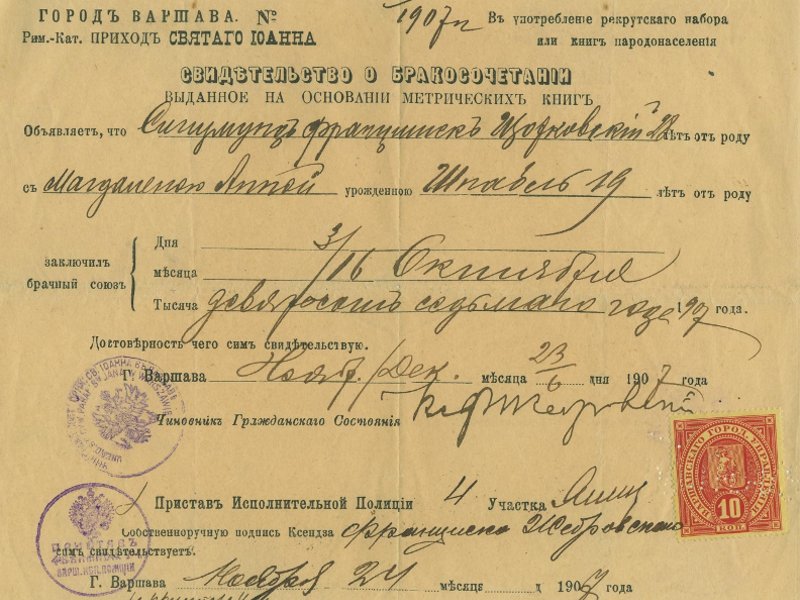 ГОРОДЪ ВАРШАВА. №
1907
Въ употребленіе рекрутскаго набора
Рим.-Кат. ПРИХОДЪ СВЯТАГО ІОАННА
или книгъ народонаселенія
СВИДѢТЕЛЬСТВО О БРАКОСОЧЕТАНІИ
ВЫДАННОЕ НА ОСНОВАНІИ МЕТРИЧЕСКИХЪ КНИГЪ
Объявляетъ, что Сигизмундъ Францишекъ лѣтъ отъ роду
съ Магдаленою Анной урожденною Шнабель 19 лѣтъ отъ роду
Дня 3/16
заключилъ мѣсяца Октября
брачный союзъ Тысяча девятьсотъ седьмаго года 1907 года.
Достовѣрность чего симъ свидѣтельствую.
Г. Варшава Нояб./Дек. мѣсяца 23/6 дня 1907 года
Чиновникъ Гражданскаго Состоянія
Приставъ Исполнительной Полиціи 4 Участка
Собственноручную подпись Ксендза Францишка Жебровскаго
симъ свидѣтельствуетъ.
Г. Варшава Ноября 24 мѣсяца д 1907 года
10
КОП.